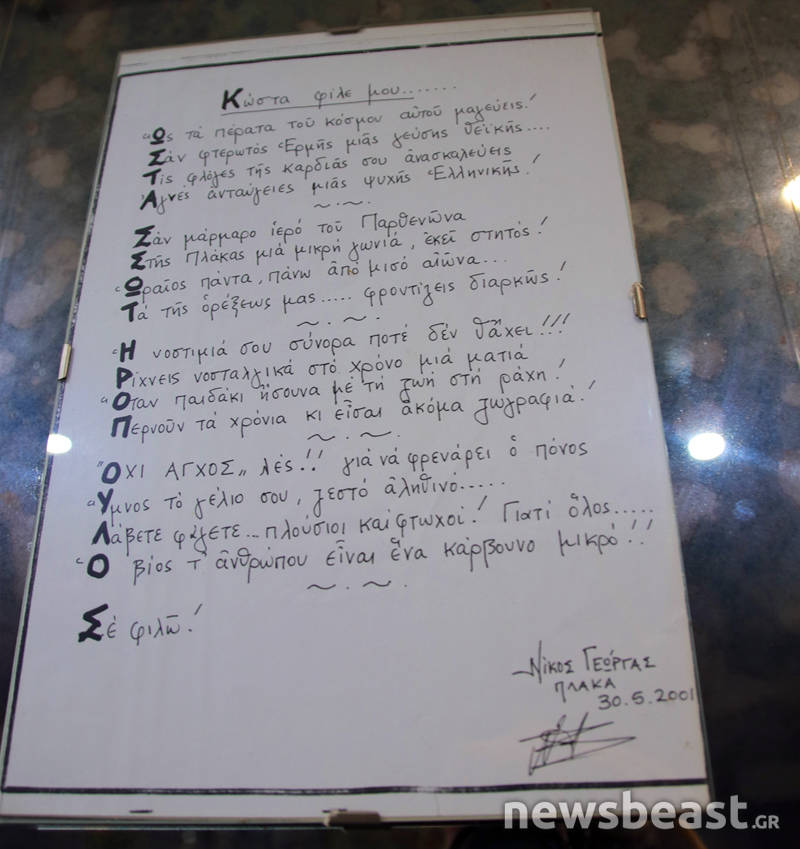 Κώστα φίλε μου.......
Ὡς τά πέρατα τοῦ κόσμου αὐτοῦ μαγεύεις!
Σάν φτερωτός Ἑρμῆς μιᾶς γεύσης θεϊκῆς....
Τίς φλόγες τῆς καρδιᾶς σου ἀνασκαλεύεις
Ἁγνές ἀνταύγειες μιᾶς ψυχῆς Ἑλληνικῆς!
~.~.
Σάν μάρμαρο ἱερό τοῦ Παρθενῶνα
Στῆς Πλάκας μιά μικρή γωνιά, ἐκεῖ στητός!
Ὡραῖος πάντα, πάνω ἀπό μισό αἰῶνα...
Τά τῆς ὀρέξεως μας..... φροντίζεις διαρκῶς!
~.~.
Ἡ νοστιμιά σου σύνορα ποτέ δέν θἄχει!!!
Ρίχνεις νοσταλγικά στό χρόνο μιά ματιά
Ὅταν παιδάκι ἤσουνα μέ τή ζωή στή ράχη!
Περνοῦν τά χρόνια κι εἶσαι ἀκόμα ζωγραφιά!
~.~.
"ΟΧΙ ΑΓΧΟΣ„ λές!! γιά νά φρενάρει ὁ πόνος
Ὕμνος τό γέλιο σου, ζεστό ἀληθινό.....
Λάβετε φάγετε... πλούσιοι καί φτωχοί! Γιατί ὅλος.....
Ὁ βίος τ' ἀνθρώπου εἶναι ἕνα κάρβουνο μικρό!!
~.~.
Σέ φιλῶ!
ΝΙΚΟΣ ΓΕΩΡΓΑΣ
ΠΛΑΚΑ
30.5.2001
newsbeast.GR